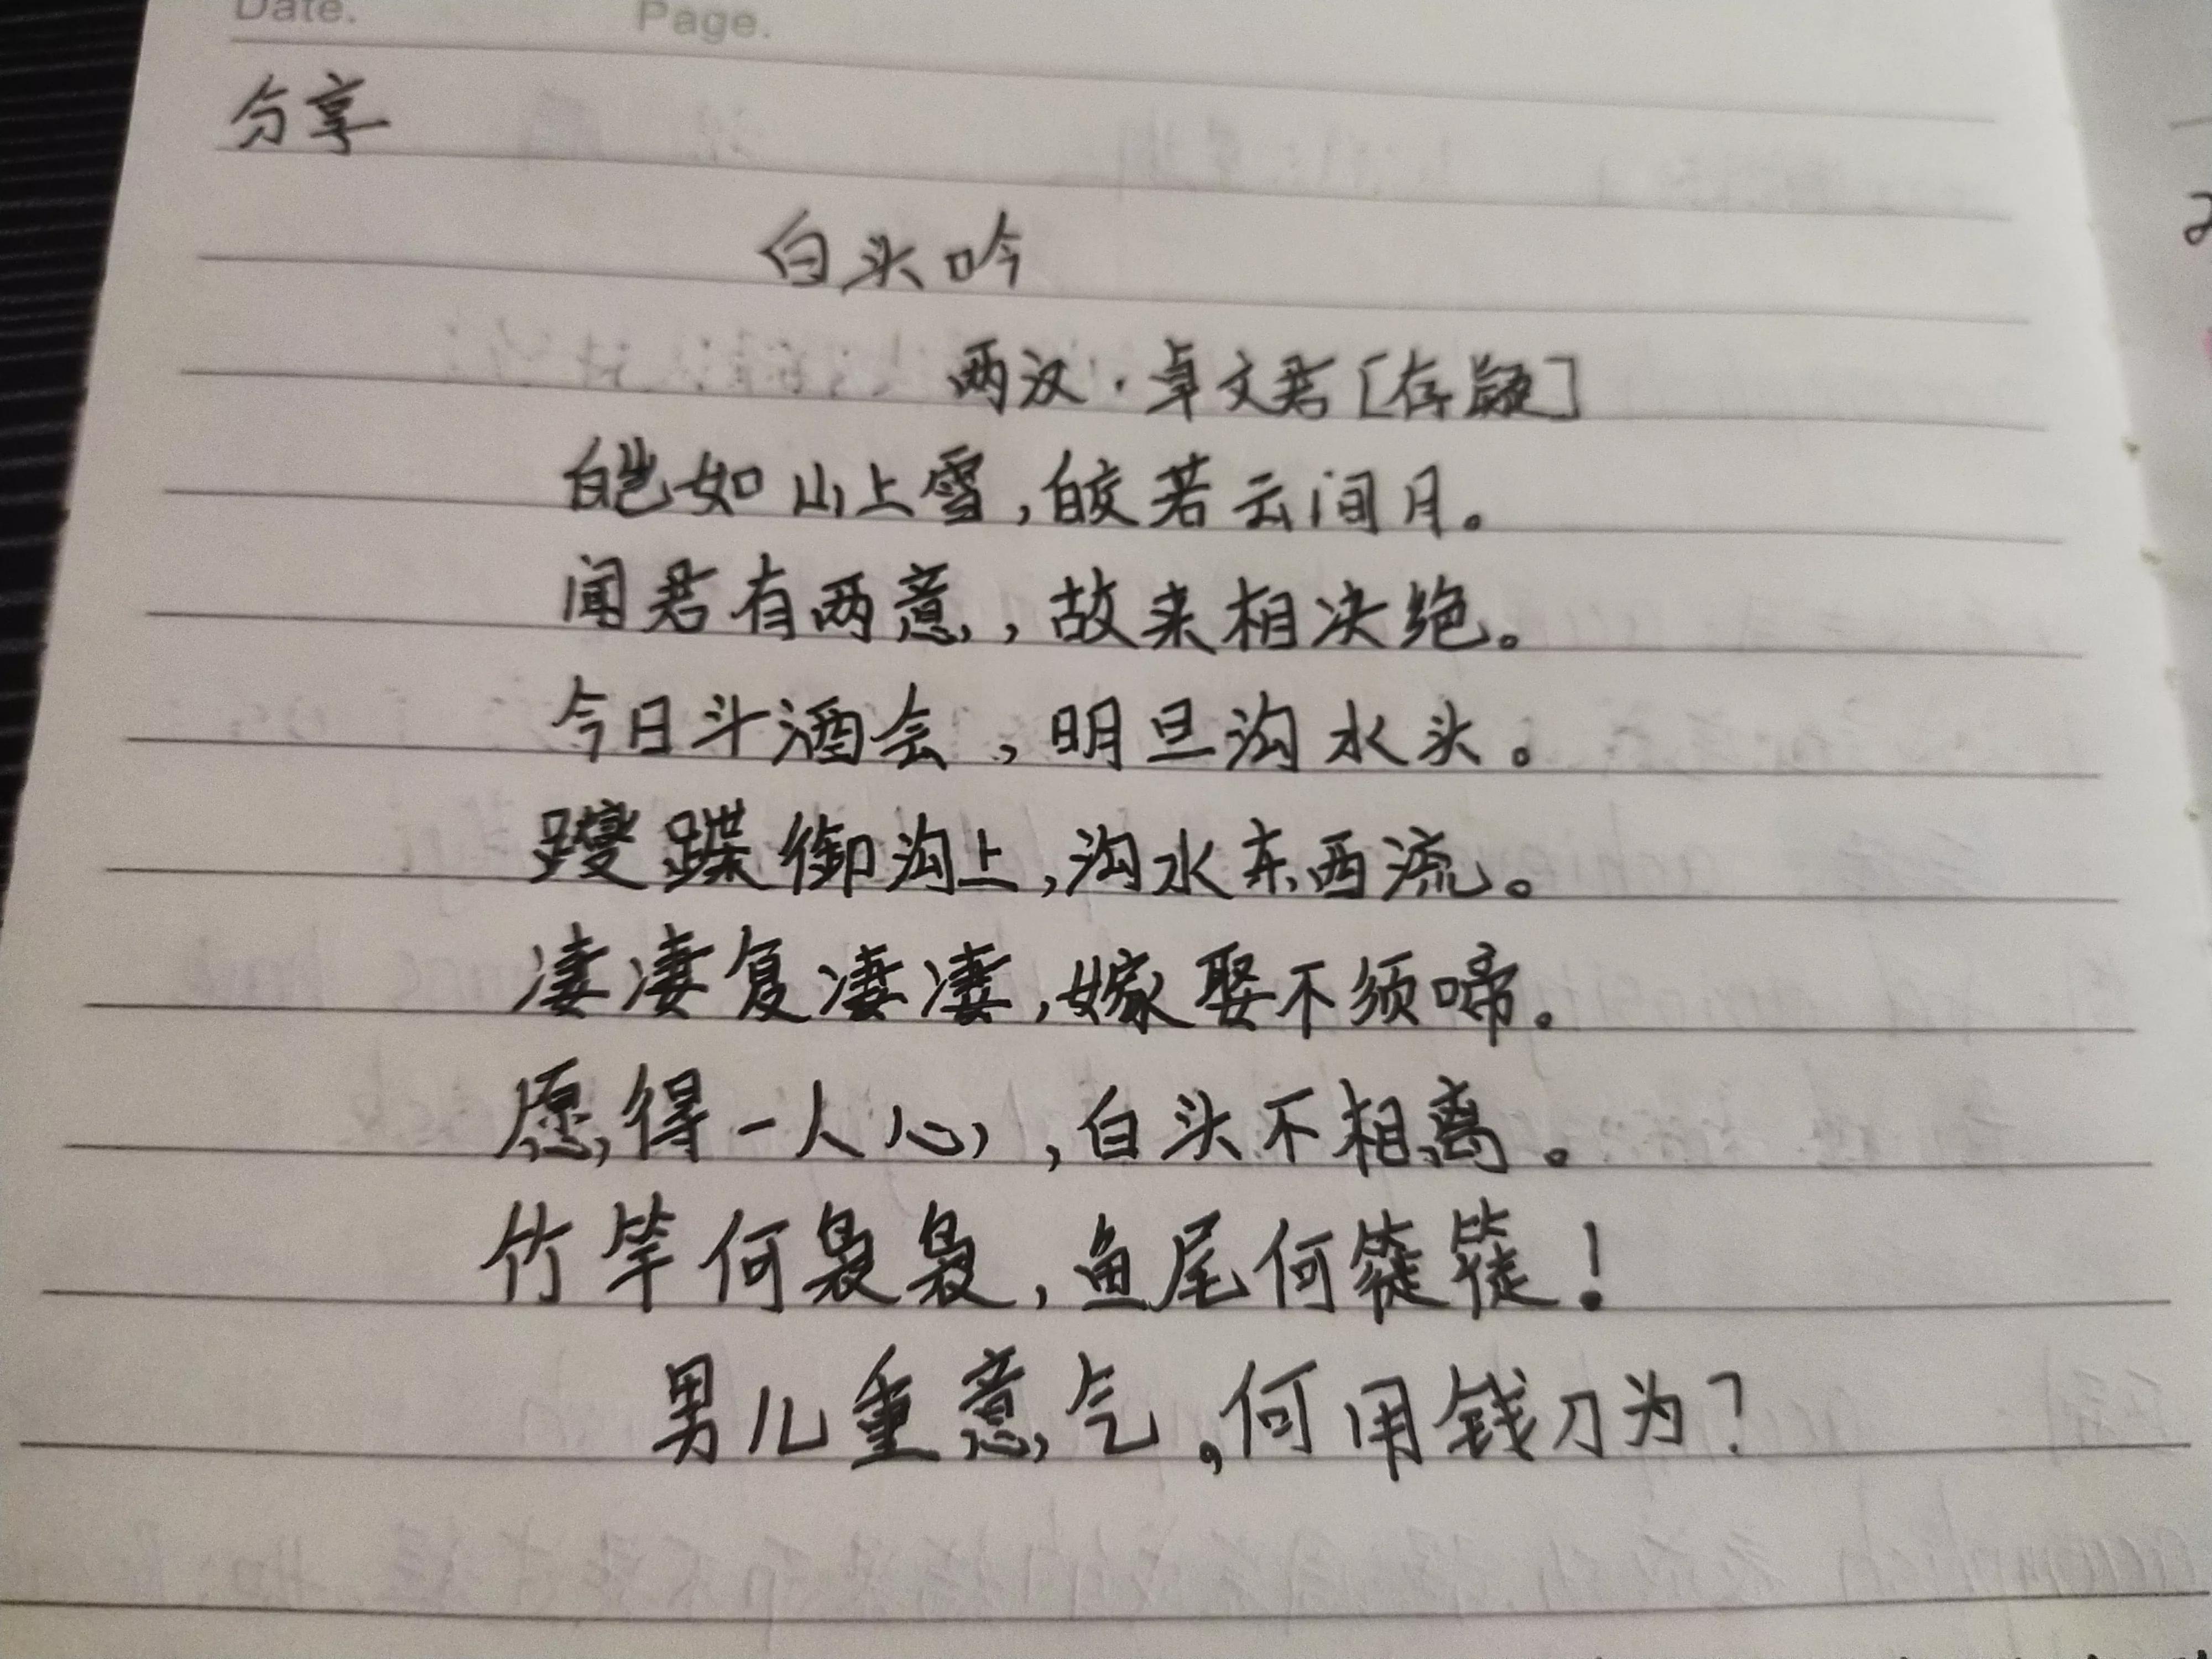 Date. Page.
分享
白头吟
两汉·卓文君[存疑]
皑如山上雪,皎若云间月。
闻君有两意,故来相决绝。
今日斗酒会,明旦沟水头。
躞蹀御沟上,沟水东西流。
凄凄复凄凄,嫁娶不须啼。
愿得一人心,白头不相离。
竹竿何袅袅,鱼尾何簁簁!
男儿重意气,何用钱刀为?